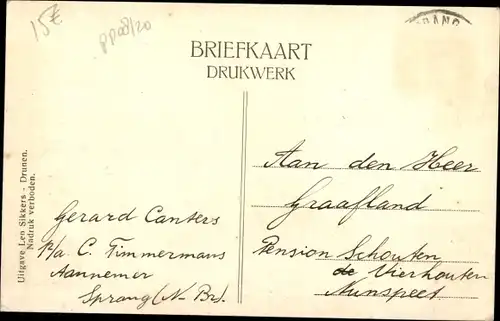 15€
ppaº/20
SPRANG
BRIEFKAART
DRUKWERK
Aan den Heer
Graafland
Pension Schouten
de Vierhouten
Nunspeet
Gerard Canters
p/a C. Timmermans
Aannemer
Sprang (N-Br).
Uitgave Len Sikkers - Drunen.
Nadruk verboden.